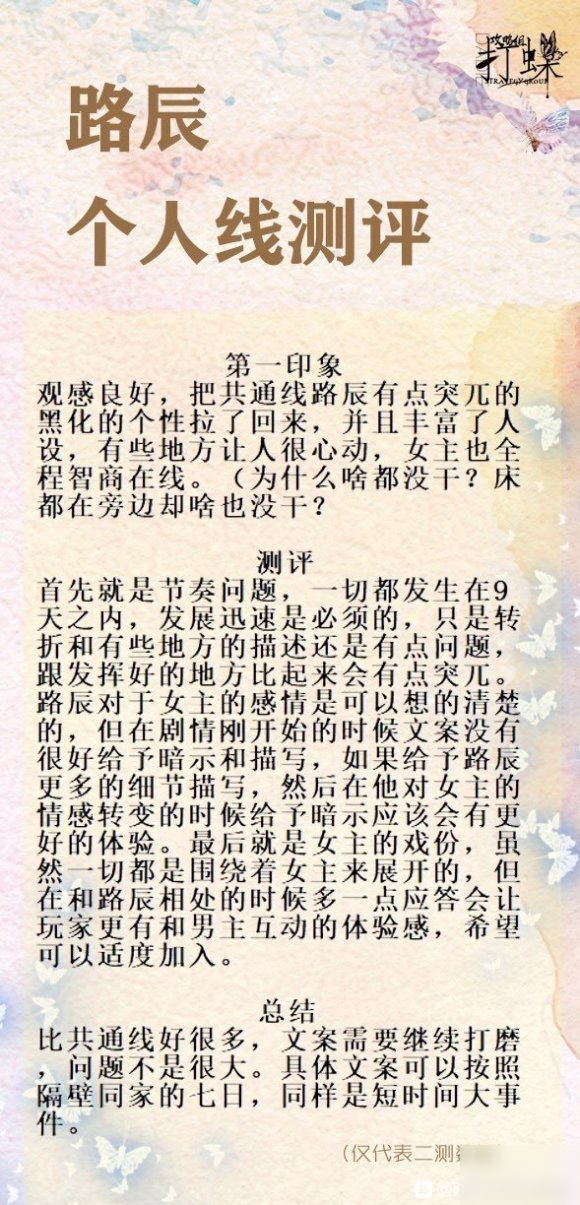 攻略组
打蝶
STRATEGY GROUP
路辰
个人线测评
第一印象
观感良好，把共通线路辰有点突兀的
黑化的个性拉了回来，并且丰富了人
设，有些地方让人很心动，女主也全
程智商在线。（为什么啥都没干？床
都在旁边却啥也没干？
测评
首先就是节奏问题，一切都发生在9
天之内，发展迅速是必须的，只是转
折和有些地方的描述还是有点问题，
跟发挥好的地方比起来会有点突兀。
路辰对于女主的感情是可以想的清楚
的，但在剧情刚开始的时候文案没有
很好给予暗示和描写，如果给予路辰
更多的细节描写，然后在他对女主的
情感转变的时候给予暗示应该会有更
好的体验。最后就是女主的戏份，虽
然一切都是围绕着女主来展开的，但
在和路辰相处的时候多一点应答会让
玩家更有和男主互动的体验感，希望
可以适度加入。
总结
比共通线好很多，文案需要继续打磨
，问题不是很大。具体文案可以按照
隔壁同家的七日，同样是短时间大事
件。
（仅代表二测